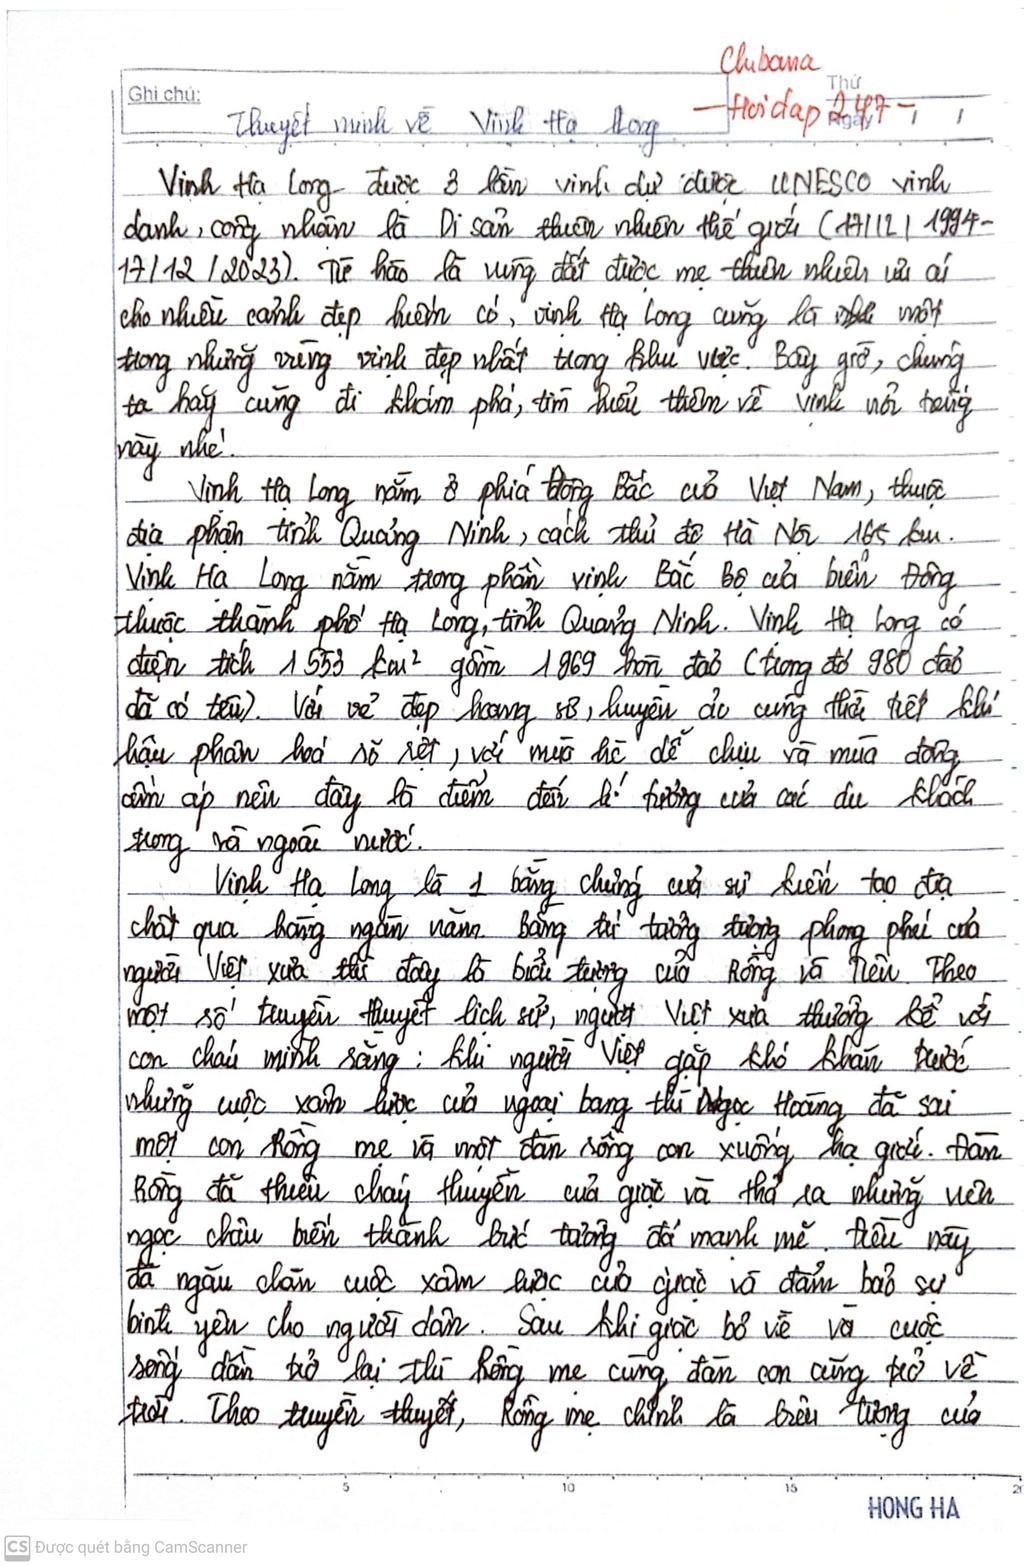 Chibana
Thứ
Ghi chú:
- Hoidap 247 -
Ngày / /
Thuyết minh về Vịnh Hạ Long
Vịnh Hạ Long được 3 lần vinh dự được UNESCO vinh
danh, công nhận là Di sản thiên nhiên thế giới (17/12/1994-
17/12/2023). Tự hào là vùng đất được mẹ thiên nhiên ưu ái
cho nhiều cảnh đẹp hiếm có, vịnh Hạ Long cũng là một
trong những vùng vịnh đẹp nhất trong khu vực. Bây giờ, chúng
ta hãy cùng đi khám phá, tìm hiểu thêm về vịnh nổi tiếng
này nhé.
Vịnh Hạ Long nằm ở phía Đông Bắc của Việt Nam, thuộc
địa phận tỉnh Quảng Ninh, cách thủ đô Hà Nội 165 km.
Vịnh Hạ Long nằm trong phần vịnh Bắc Bộ của biển Đông
thuộc thành phố Hạ Long, tỉnh Quảng Ninh. Vịnh Hạ Long có
diện tích 1553 km² gồm 1969 hòn đảo (trong đó 980 đảo
đã có tên). Với vẻ đẹp hoang sơ, huyền ảo cùng thời tiết khí
hậu phân hoá rõ rệt, với mùa hè dễ chịu và mùa đông
ấm áp nên đây là điểm đến lí tưởng của các du khách
trong và ngoài nước.
Vịnh Hạ Long là 1 bằng chứng của sự kiến tạo địa
chất qua hàng ngàn năm. Bằng trí tưởng tượng phong phú của
người Việt xưa thì đây là biểu tượng của Rồng và Tiên. Theo
một số truyền thuyết lịch sử, người Việt xưa thường kể với
con cháu mình rằng: khi người Việt gặp khó khăn trước
những cuộc xâm lược của ngoại bang thì Ngọc Hoàng đã sai
một con Rồng mẹ và một đàn rồng con xuống hạ giới. Đàn
Rồng đã thiêu cháy thuyền của giặc và thả ra những viên
ngọc châu biến thành bức tường đá mạnh mẽ. Điều này
đã ngăn chặn cuộc xâm lược của giặc và đảm bảo sự
bình yên cho người dân. Sau khi giặc bỏ về và cuộc
sống dần trở lại thì Rồng mẹ cùng đàn con cũng trở về
trời. Theo truyền thuyết, Rồng mẹ chính là biểu tượng của
5 10 15 20
HONG HA
CS Được quét bằng CamScanner